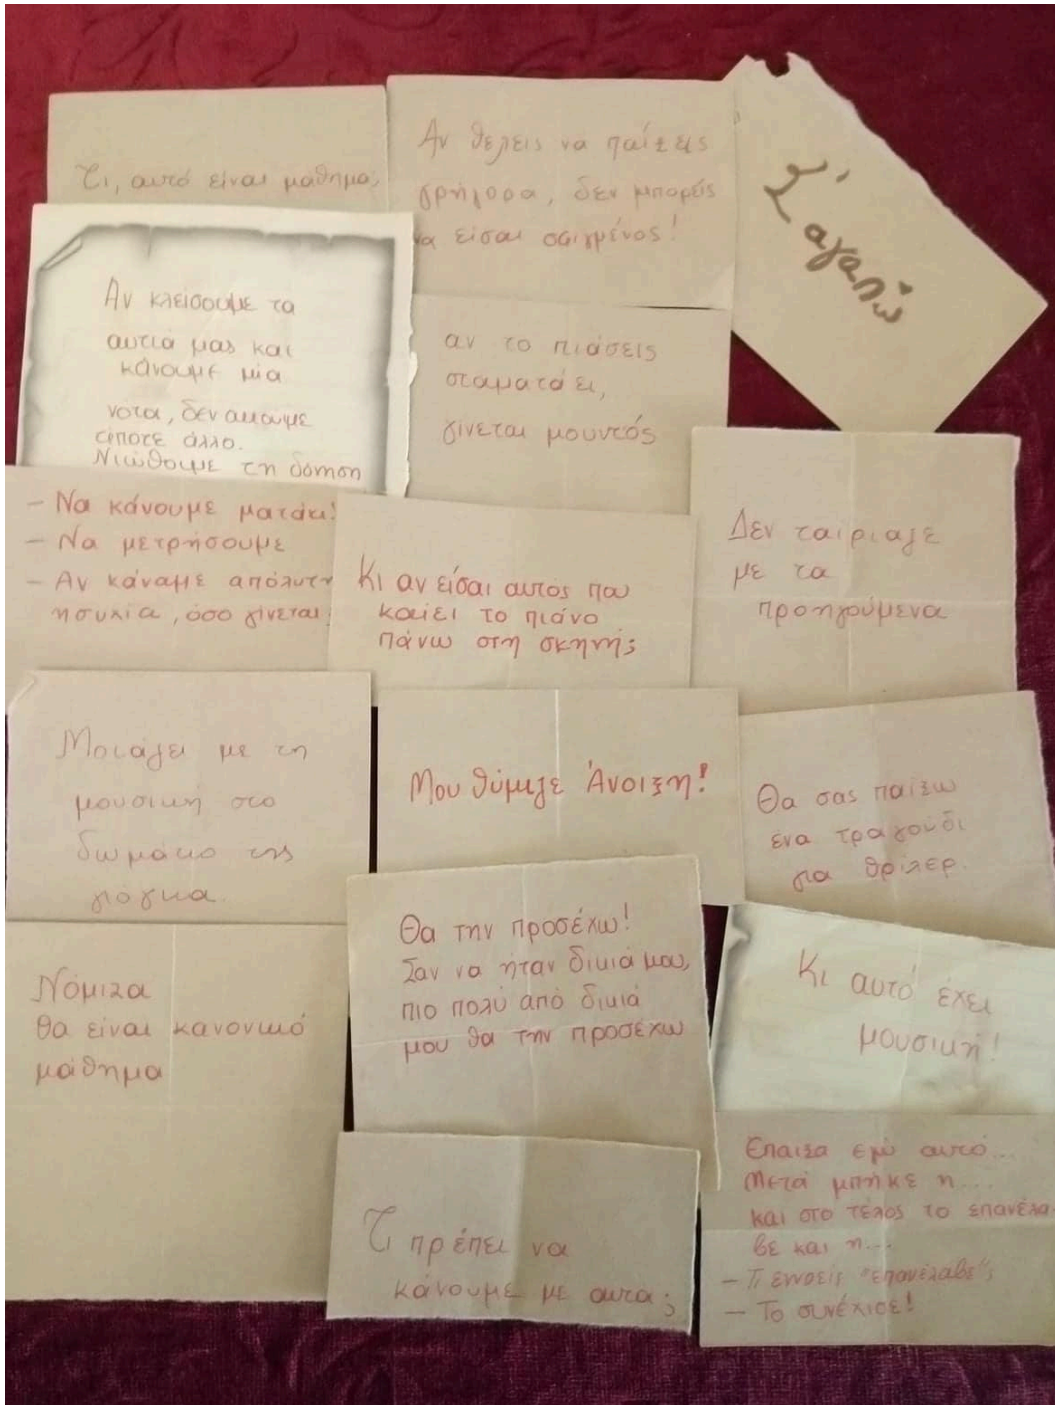 Τι, αυτό είναι μάθημα;
Αν θελεις να παίξεις
γρήγορα, δεν μπορείς
να είσαι σφιγμένος!
Σ'αγαπώ
Αν κλείσουμε τα
αυτιά μας και
κάνουμε μία
νότα, δεν ακουμε
τίποτε άλλο.
Νιώθουμε τη δόνηση
αν το πιάσεις
σταματάει,
γίνεται μουντός
- Να κάνουμε ματάκι!
- Να μετρήσουμε
- Αν κάναμε απόλυτη
ησυχία, όσο γίνεται;
Κι αν είσαι αυτός που
καίει το πιάνο
πάνω στη σκηνή;
Δεν ταίριαζε
με τα
προηγούμενα
Μοιάζει με τη
μουσική στο
δωμάτιο της
γιόγκα.
Μου θύμιζε Άνοιξη!
Θα σας παίξω
ενα τραγούδι
για θρίλερ.
Νόμιζα
θα είναι κανονικό
μάθημα
Θα την προσέχω!
Σαν να ήταν δικιά μου,
πιο πολύ από δικιά
μου θα την προσέχω
Κι αυτό έχει
μουσική!
Τι πρέπει να
κάνουμε με αυτα;
Επαιξα εγώ αυτό...
Μετά μπήκε η...
και στο τέλος το επανέλα
βε και η...
- Τι εννοείς "επανέλαβε";
- Το συνέχισε!